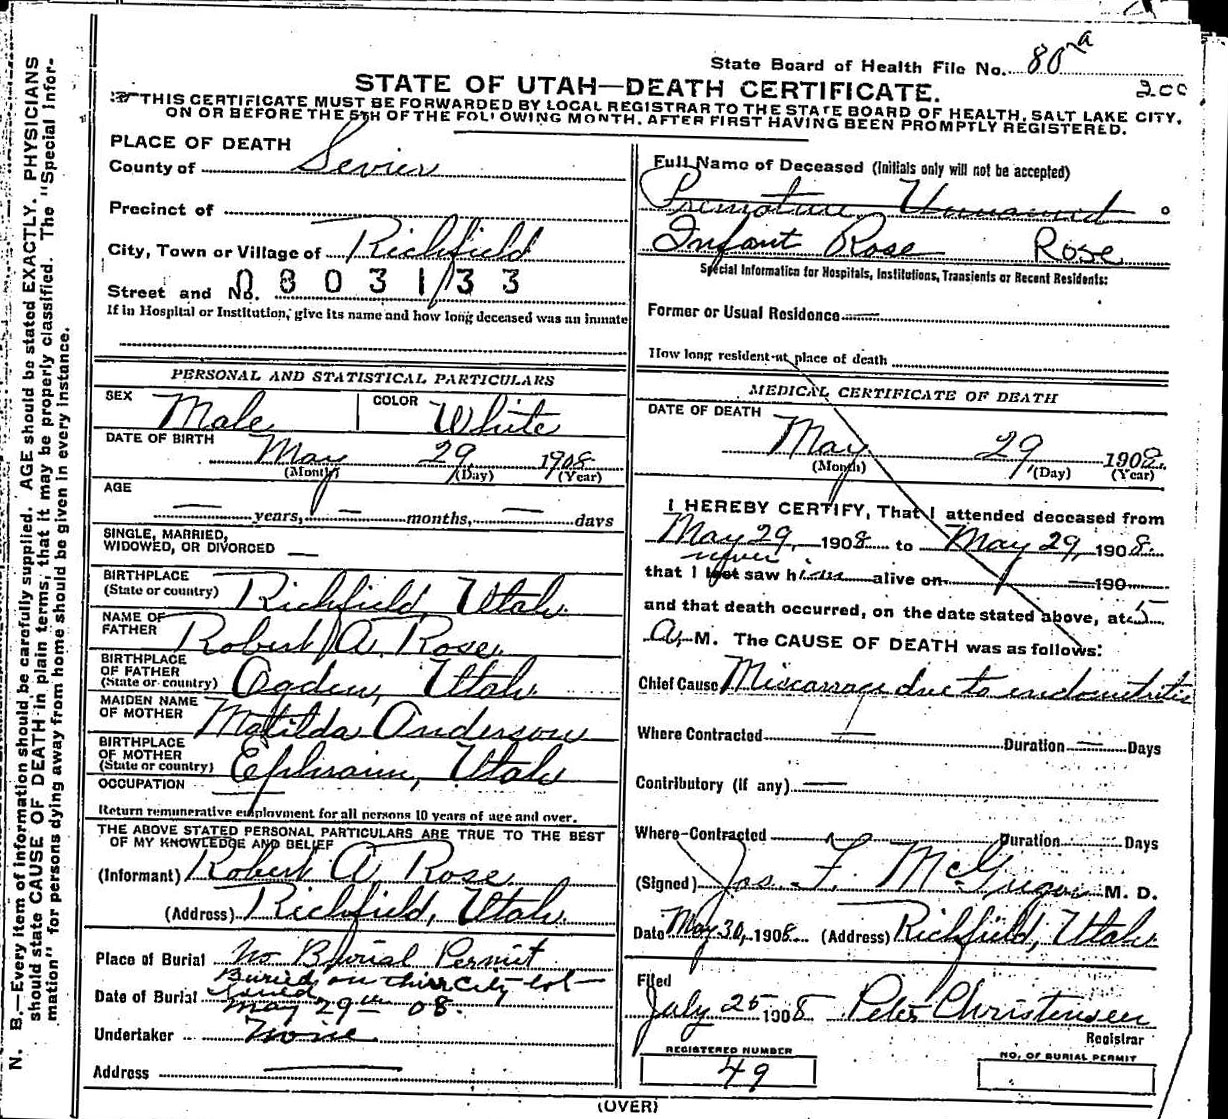 State Board of Health File No. 80 a
STATE OF UTAH—DEATH CERTIFICATE.
200
THIS CERTIFICATE MUST BE FORWARDED BY LOCAL REGISTRAR TO THE STATE BOARD OF HEALTH, SALT LAKE CITY,
ON OR BEFORE THE 5TH OF THE FOLLOWING MONTH, AFTER FIRST HAVING BEEN PROMPTLY REGISTERED.
N. B.—Every item of information should be carefully supplied. AGE should be stated EXACTLY. PHYSICIANS
should state CAUSE OF DEATH in plain terms, that it may be properly classified. The "Special Infor-
mation" for persons dying away from home should be given in every instance.
PLACE OF DEATH
County of Sevier
Precinct of
City, Town or Village of Richfield
Street and No. 0803133
If in Hospital or Institution, give its name and how long deceased was an inmate
PERSONAL AND STATISTICAL PARTICULARS
SEX Male COLOR White
DATE OF BIRTH May 29 1908
(Month) (Day) (Year)
AGE — years, — months, — days
SINGLE, MARRIED,
WIDOWED, OR DIVORCED —
BIRTHPLACE
(State or country) Richfield, Utah.
NAME OF
FATHER Robert A. Rose.
BIRTHPLACE
OF FATHER
(State or country) Ogden, Utah.
MAIDEN NAME
OF MOTHER Matilda Anderson
BIRTHPLACE
OF MOTHER
(State or country) Ephraim, Utah
OCCUPATION —
Return remunerative employment for all persons 10 years of age and over.
THE ABOVE STATED PERSONAL PARTICULARS ARE TRUE TO THE BEST
OF MY KNOWLEDGE AND BELIEF
(Informant) Robert A. Rose.
(Address) Richfield, Utah.
Place of Burial No Burial Permit
Buried on their City lot
Date of Burial May 29th 08.
Undertaker None
Address —
Full Name of Deceased (Initials only will not be accepted)
Premature Unnamed
Infant Rose Rose
Special Information for Hospitals, Institutions, Transients or Recent Residents:
Former or Usual Residence —
How long resident at place of death
MEDICAL CERTIFICATE OF DEATH
DATE OF DEATH
May 29, 1908.
(Month) (Day) (Year)
I HEREBY CERTIFY, That I attended deceased from
May 29, 1908 to May 29, 1908.
never
that I last saw him alive on — 190—
and that death occurred, on the date stated above, at 5
A. M. The CAUSE OF DEATH was as follows:
Chief Cause Miscarriage due to endometritis
Where Contracted — Duration — Days
Contributory (if any) —
Where Contracted Duration Days
(Signed) Jas. F. McGregor M. D.
Date May 30, 1908 (Address) Richfield, Utah
Filed
July 25 1908 Peter Christensen
Registrar
REGISTERED NUMBER
49
NO. OF BURIAL PERMIT
(OVER)